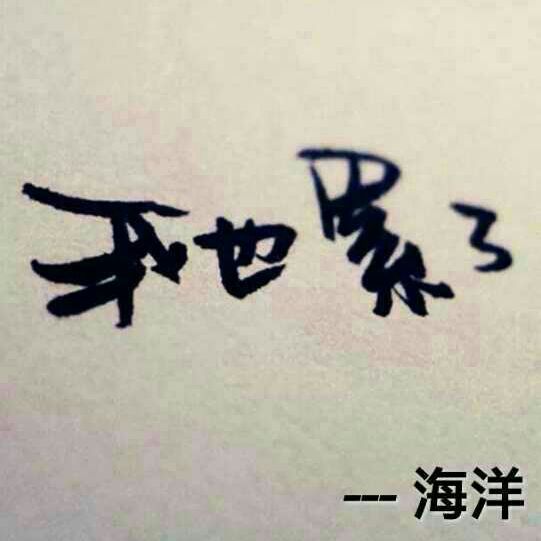 我也累了
--- 海洋